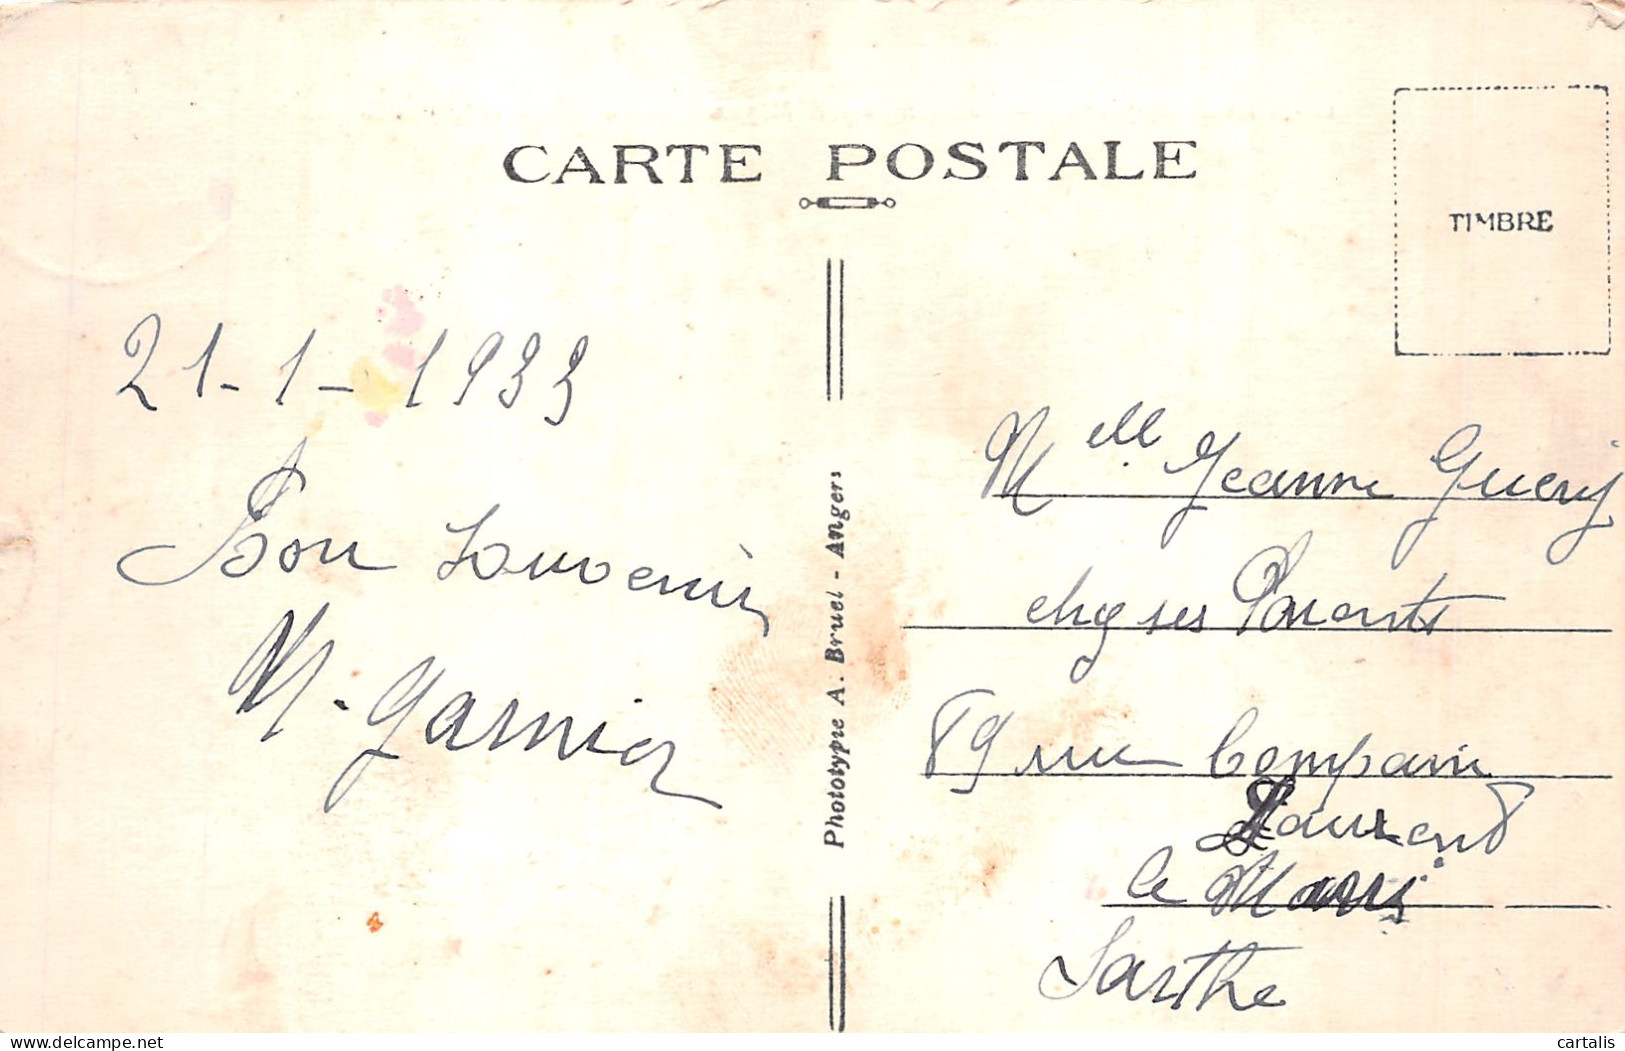 CARTE POSTALE
TIMBRE
21-1-1933
Bon Souvenir
M. Garnier
Phototypie A. Bruel - Angers
Melle Jeanne Guery
chez ses Parents
89 rue Compain
Laurent
Le Mans
Sarthe
delcampe.net
cartalis